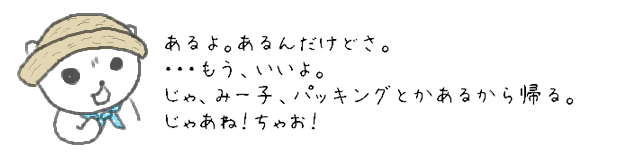 あるよ。あるんだけどさ。
・・・もう、いいよ。
じゃ、みー子、パッキングとかあるから帰る。
じゃあね!ちゃお!